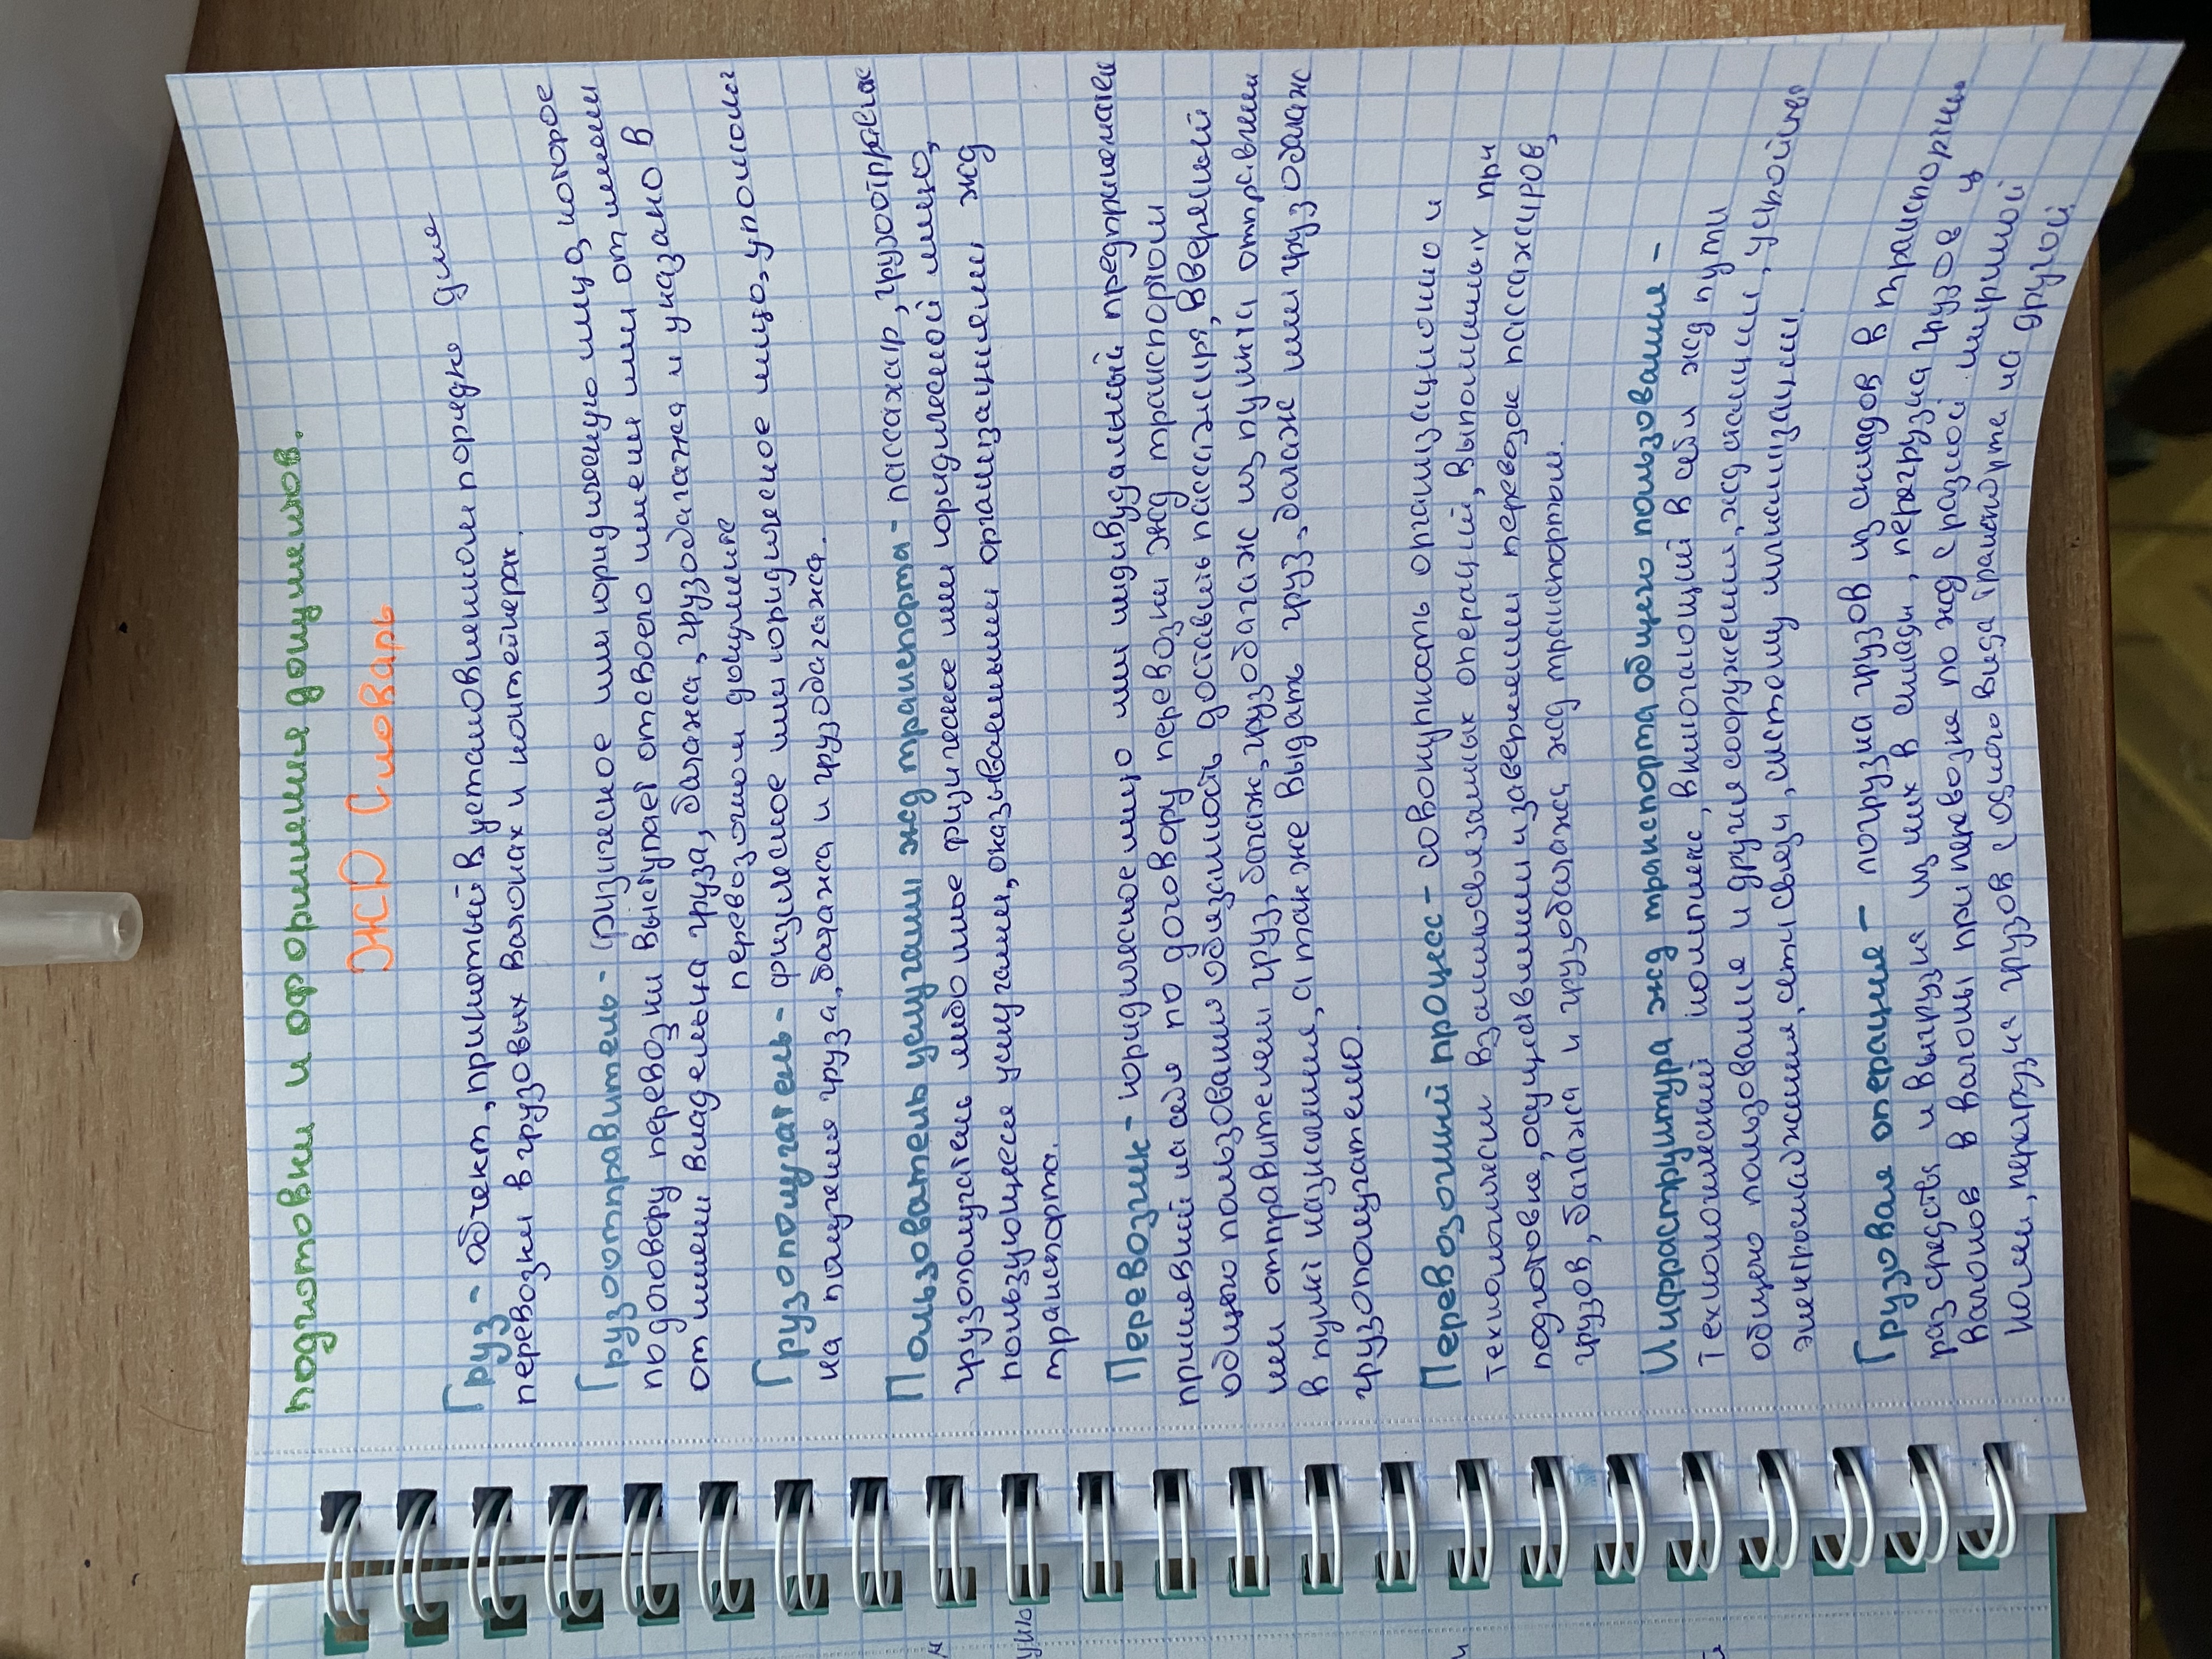 подготовки и оформления документов.
ЖД Словарь
Груз - объект, принятый в установленном порядке для
перевозки в грузовых вагонах и контейнерах.
Грузоотправитель - физическое или юридическую лицо, которое
по договору перевозки выступает от своего имени или от имени
от имени владельца груза, багажа, грузобагажа и указано в
перевозочном документе
Грузополучатель - физическое или юридическое лицо, упомом
на получения груза, багажа и грузобагажа.
Пользователь услугами жд транспорта - пассажир, грузоотправит
грузополучатель либо иное физическое или юридической лицо,
пользующиеся услугами, оказываемыми организациями жд
транспорта.
Перевозчик - юридическое лицо или индивудальный предпринематель
принявший на себя по договору перевозки жд транспортом
общего пользования обязанность доставить пассажира, вверенный
им отправителем груз, багаж, грузобагаж из пункта отправлени
в пункт назначения, а также выдать груз, багаж или грузобагаж
грузополучателю.
Перевозочный процесс - совокупность организационно и
технологически взаимосвязанных операций, выполнимых при
подготовке, осуществлении и завершении перевозок пассажиров,
грузов, багажа и грузобагажа жд транспортом.
Инфраструктура жд транспорта общего пользования -
технологический комплекс, включающий в себя жд пути
общего пользование и другие сооружения, жд станции, устройства
электроснабжения, сети связи, систему сигнализации.
Грузовая операция - погрузка грузов из складов в транспортны
раз средства и выгрузка из них в склады, перегрузка грузов и
вагонов в вагоны при перевозке по жд с разной шириной
колеи, перегрузка грузов с одного вида транспорта на другой